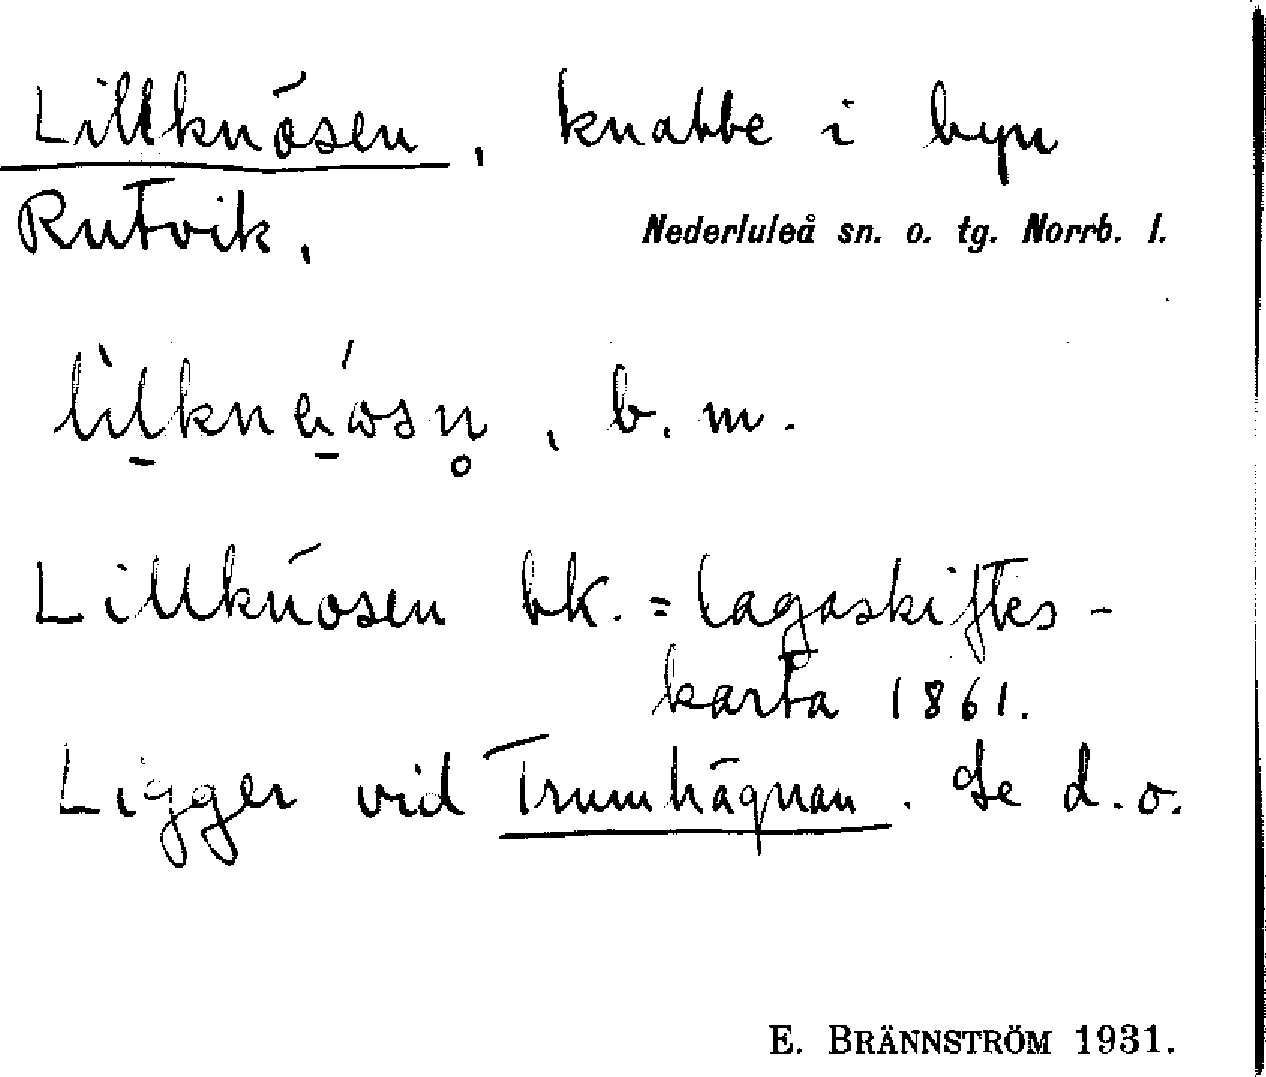 Lillknösen, knabbe i byn
Rutvik,
Nederluleå sn. o. tg. Norrb. l.
b. m.
Lillknösen bk. = lagaskiftes-
karta 1861.
Ligger vid Trumhägnan. Se d.o.
E. BRÄNNSTRÖM 1931.